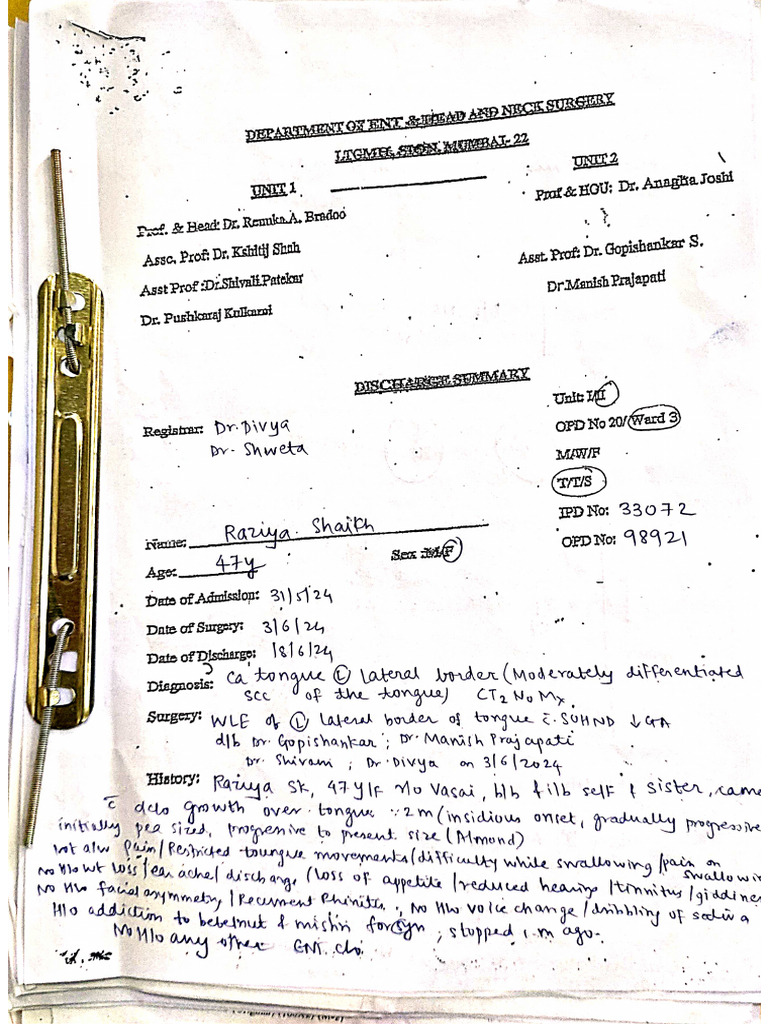 DEPARTMENT OF ENT & HEAD AND NECK SURGERY
LTGMH, SION, MUMBAI- 22
UNIT 1
UNIT 2
Prof. & Head: Dr. Renuka.A. Bradoo
Prof & HOU: Dr. Anagha Joshi
Asso. Prof: Dr. Kshitij Shah
Asst. Prof: Dr. Gopishankar S.
Asst Prof :Dr.Shivali.Patekar
Dr.Manish Prajapati
Dr. Pushkaraj Kulkarni
DISCHARGE SUMMARY
Unit: I/II
Registrar: Dr. Divya
OPD No 20/ Ward 3
Dr. Shweta
M/W/F
T/T/S
IPD No: 33072
Name: Raziya Shaikh
OPD No: 98921
Age: 47y
Sex :M/F
Date of Admission: 31/5/24
Date of Surgery: 3/6/24
Date of Discharge: 18/6/24
Diagnosis: Ca tongue (L) lateral border (Moderately differentiated
SCC of the tongue) CT2 N0 Mx
Surgery: WLE of (L) lateral border of tongue c̄ SOHND ↓ GA
d/b Dr. Gopishankar ; Dr. Manish Prajapati
Dr. Shivani ; Dr. Divya on 3/6/2024
History: Raziya Sk, 47y/F r/o Vasai, b/b & i/b self & sister, came
c̄ c/o growth over tongue 2m (insidious onset, gradually progressive
initially pea sized, progressive to present size (Almond)
Pain/Restricted toungue movements/difficulty while swallowing/pain on swallowing
No H/o wt loss/ear ache/discharge/loss of appetite/reduced hearing/tinnitus/giddiness
No H/o facial asymmetry/Recurrent Rhinitis, No H/o voice change/dribbling of saliva
H/o addiction to betelnut & mishri for 5yn ; stopped 1 m ago.
No H/o any other ENT c/o